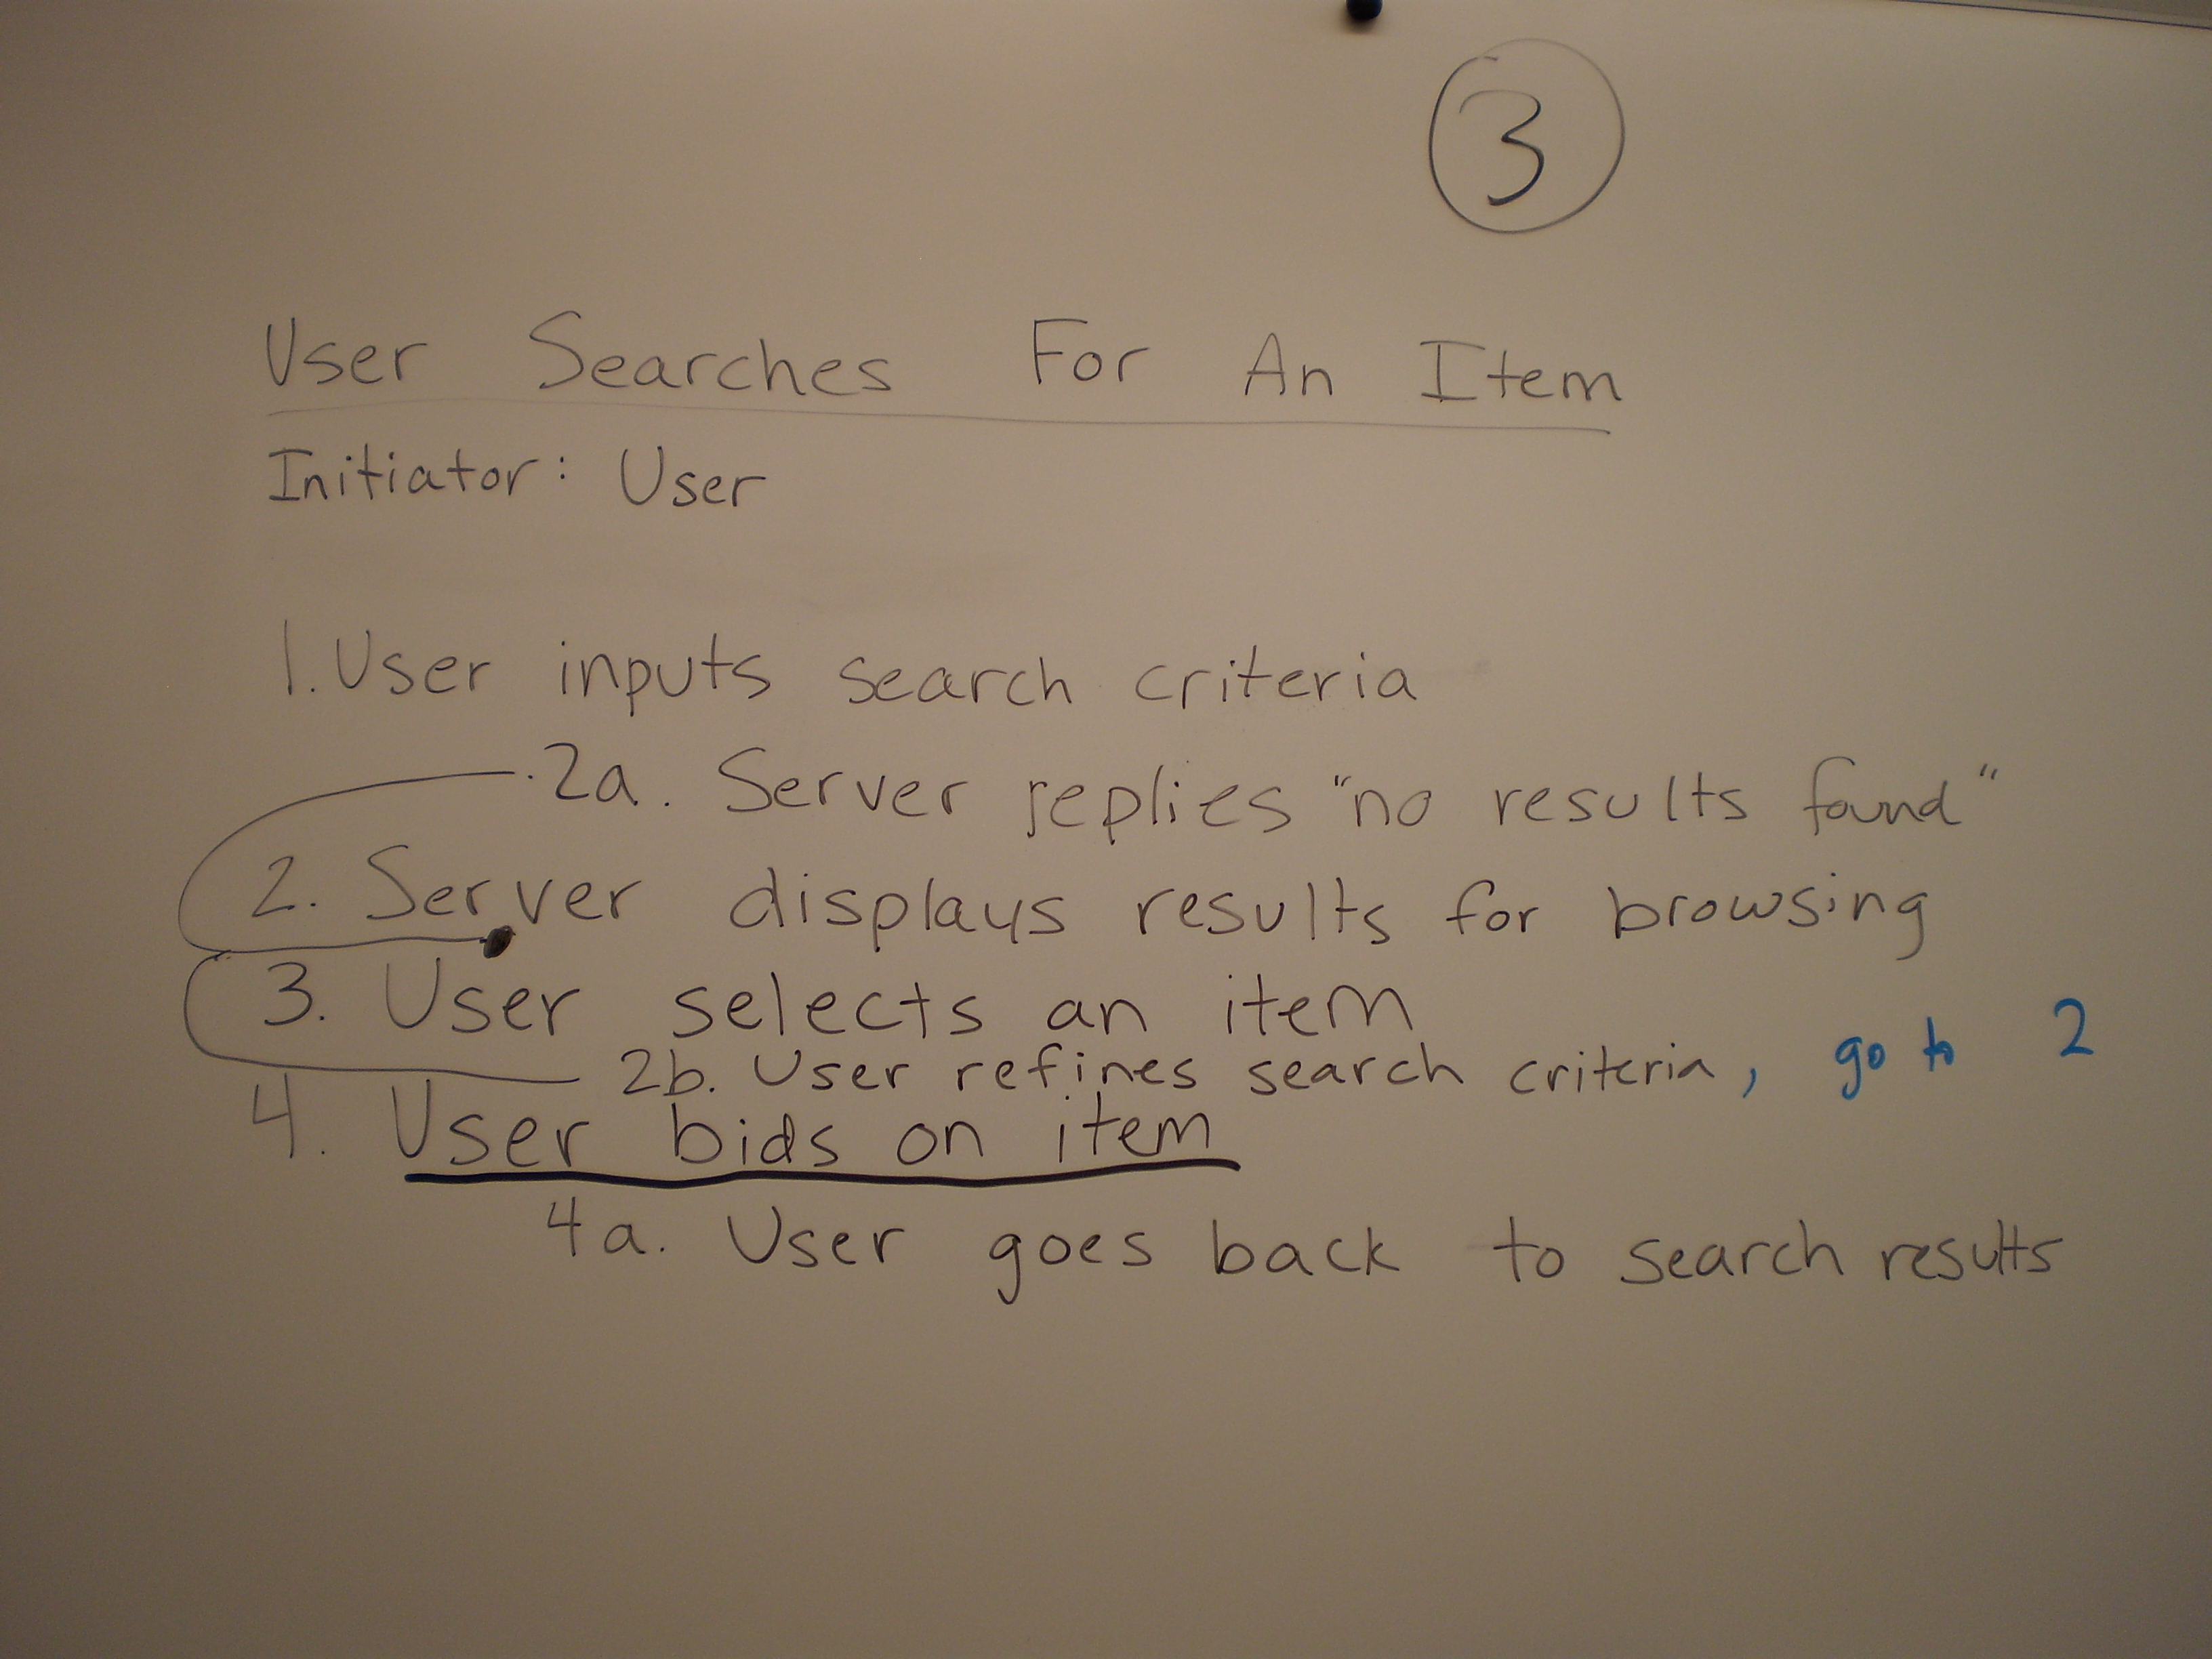 3
User Searches For An Item
Initiator: User
1. User inputs search criteria
2a. Server replies "no results found"
2. Server displays results for browsing
3. User selects an item
2b. User refines search criteria, go to 2
4. User bids on item
4a. User goes back to search results